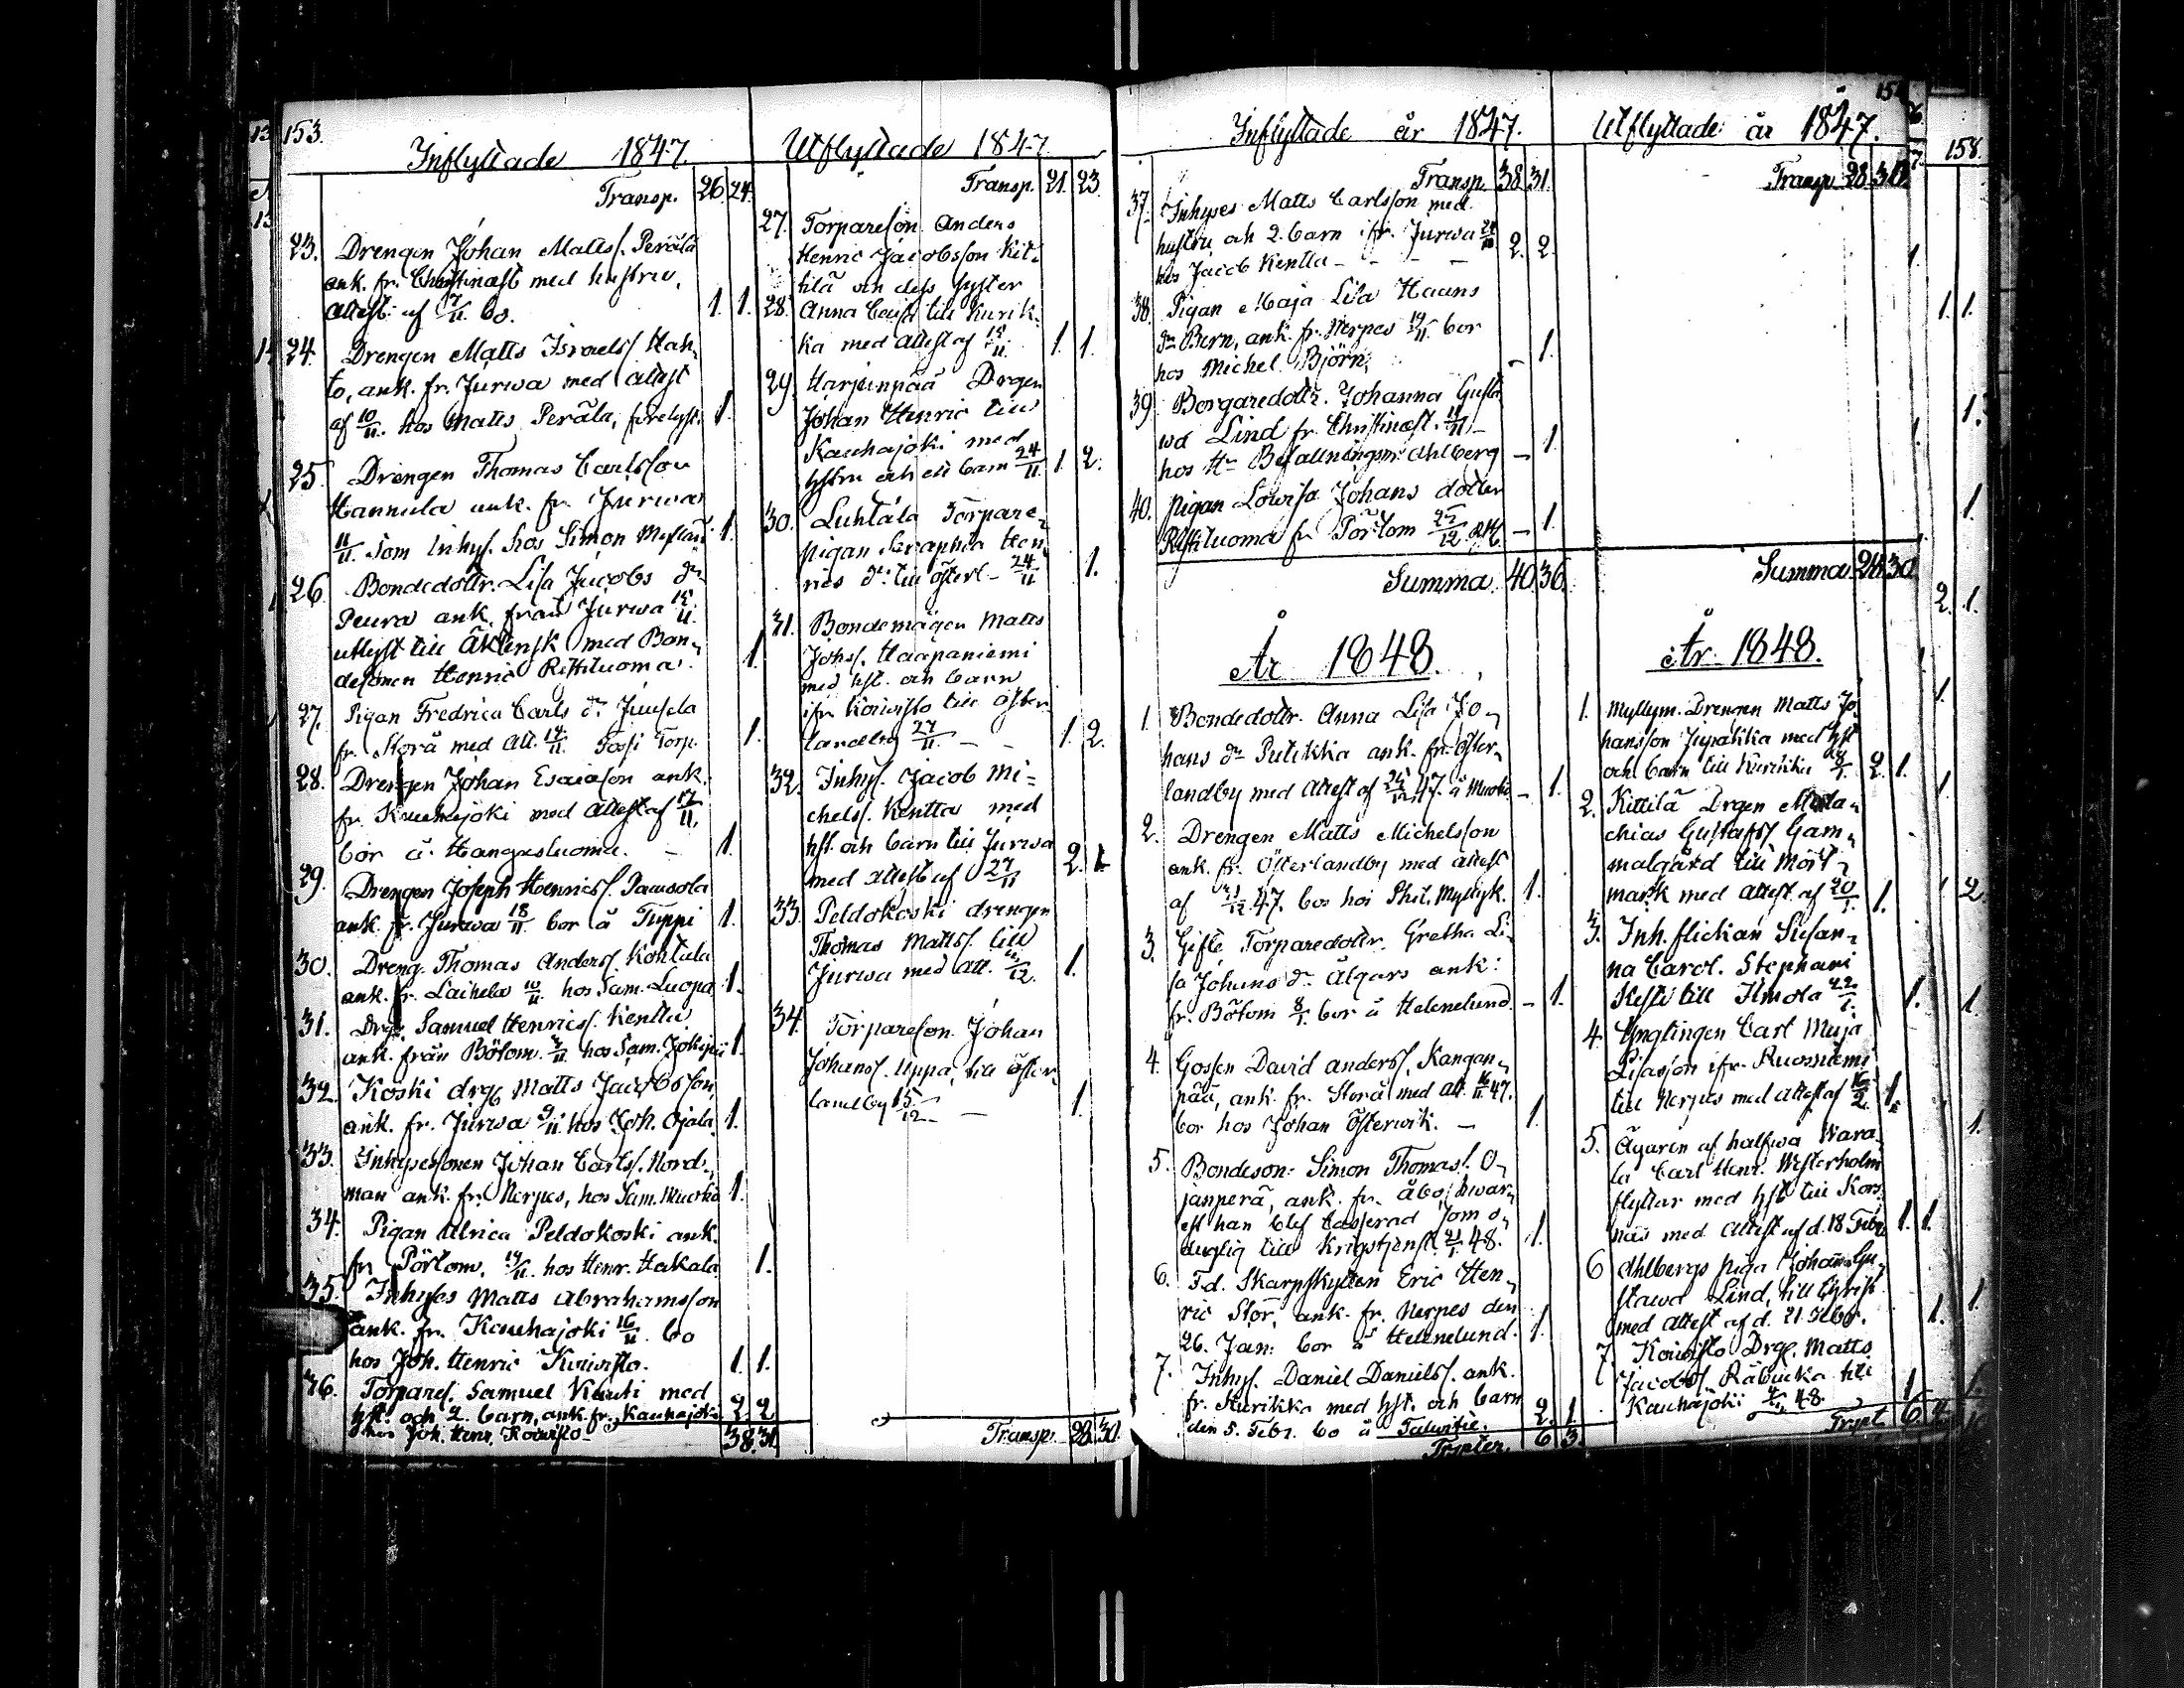 153.
Inflyttade 1847
Transp. 26 24.
23. Drengen Johan Matts. Perälä
ank. fr. Christinæst. med hustru.
Attest af 7/11. bo. 1. 1.
24. Drengen Matts Israels. Hah,
to, ank. fr. Jurwa med attest
af 10/11. hos Matts Perälä, 1.
25. Drengen Thomas Carlsson
Hannula ank. fr. Jurwa
11/11. som inhys. hos Simon 1.
26. Bondedottr. Lisa Jacobs dr
Peura ank. från Jurwa 15/11.
utlyst till Äktensk med Bon,
desonen Henric Ristiluoma. 1.
27. Pigan Fredrica Carls dr
fr. Storå med Att. 14/11. Torp. 1.
28. Drengen Johan Esaiason ank.
fr. Kauhajoki med Attest af 17/11,
bor å Hangasluoma. 1.
29. Drengen Joseph Henrics.
ank. fr. Jurwa 18/11 bor å Tuppi 1.
30. Dreng. Thomas Anders. Kohtala
ank. fr. Laihela 10/11. hos Sam. Luopa 1.
31. Drg. Samuel Henrics. Kentta
ank. från Bötom. hos Sam. 1.
32. Koski drg. Matts Jacobsson,
ank. fr. Jurwa 9/11. hos Joh. Ojala. 1.
33. Inhysesonen Johan Carls. Nord,
man ank. fr. Nerpes, hos Sam. 1.
34. Pigan Ulrica Peldokoski ank.
fr. Pörtom, 14/11. hos Henr. Hakala 1.
35. Inhyses Matts Abrahamsson
ank. fr. Kauhajoki 16/11. bo
hos Joh. Henric Koivisto. 1. 1.
36. Torpares. Samuel Kauti med
hst. och 2. barn, ank. fr. Kauhajoki 2 2
hos Joh. Henr. Koivisto
38. 31.
Utflyttade 1847
Transp. 21. 23.
27. Torpareson Anders
Henric Jacobsson Kit,
tilä och dess syster
28. Anna Caisa till Kurik,
ka med attest af 15/11. 1. 1.
29. Harjunpää Drgen
Johan Henric till
Kauhajoki med
hstru och ett barn 24/11. 1. 2.
30. Luhtala Torpare,
pigan Seraphia Hen
rics dr till Österl. 24/11 1.
31. Bondemågen Matts
Johs. Haapaniemi
med hst. och barn
ifr. Koivisto till Öster,
landby 27/11. 1. 2.
32. Inhys. Jacob Mi=
chels. Kentta med
hst. och barn till Jurwa
med attest af 27/11 2. 1.
33. Peldokoski drengen
Thomas Matts. till
Jurwa med att. 1.
34. Torpareson Johan
Johans. Uppa, till Öster,
landby 15/12. 1.
Transp. 28. 30.
Inflyttade år 1847.
Transp. 38 31.
37. Inhyses Matts Carlsson med
hustru och 2. barn ifr. Jurwa
hos Jacob Kentta 2. 2.
38. Pigan Maja Lisa Haans
dr Bern, ank. fr. Nerpes 19/11. bor
hos Michel Björn, 1.
39. Borgaredottr. Johanna Gusta
wa Lind fr. Christinæst.
hos Hr Befallningsm. Ahlberg 1.
40. Pigan Lowisa Johans dotter
Ristiluoma fr. Pörtom 1.
Summa. 40. 36.
År 1848.
1. Bondedottr. Anna Lisa Jo,
hans dr Pulikka ank. fr. Öster,
landby med attest af 47. å 1.
2. Drengen Matts Michelsson
ank. fr. Österlandby med attest
af 47. bor hos Phil. Myllyk. 1.
3. Gifte Torparedottr. Gretha Li,
sa Johans dr Älgars ank:
fr. Bötom 8/1. bor å Helenelund. 1.
4. Gossen David Anders. Kangan,
pää, ank. fr. Storå med Att. 16/11 47.
bor hos Johan Österwik. 1.
5. Bondeson: Simon Thomas. O,
janperä, ank. fr. Åbo, hwar,
est han blef casserad som o,
duglig till Krigstjenst. 21/1. 48. 1.
6. F.d. Skarpskytten Eric Hen,
ric Stor, ank. fr. Nerpes den
26. Jan: bor å Helenelund. 1.
7. Inhys. Daniel Daniels. ank.
fr. Kurikka med hst. och barn
den 5. Febr. bo å 2. 1.
6 3.
Utflyttade år 1847.
Transp. 28 30
Summa 28 30
År 1848.
1. Myllym. Drengen Matts Jo,
hansson Jyrakka med hst
och barn till Kurikka 2. 1.
2. Kittilä Drgen Mala,
chias Gustafs. Gam,
malgård till Mört,
mark med attest af 20/1. 1.
3. Inh. flickan Susan,
na Carol. Stephani
Kesti till Ilmola 22/1. 1.
4. Ynglingen Carl Maja
Lisason ifr. Ruosniemi
till Nerpes med attest af 16/2. 1.
5. Ägaren af halfwa Wara,
la Carl Henr. Westerholm
flyttar med hst till Kors,
näs med attest af d. 18 Febr 1. 1.
6 Ahlbergs piga Johan. Gu,
stawa Lind, till Christ.
med attest af d. 21. Febr. 1.
7. Koivisto Drg. Matts
Jacobs. Räbucka till
Kauhajoki 48. 1
Trspt 6. 4.
158.